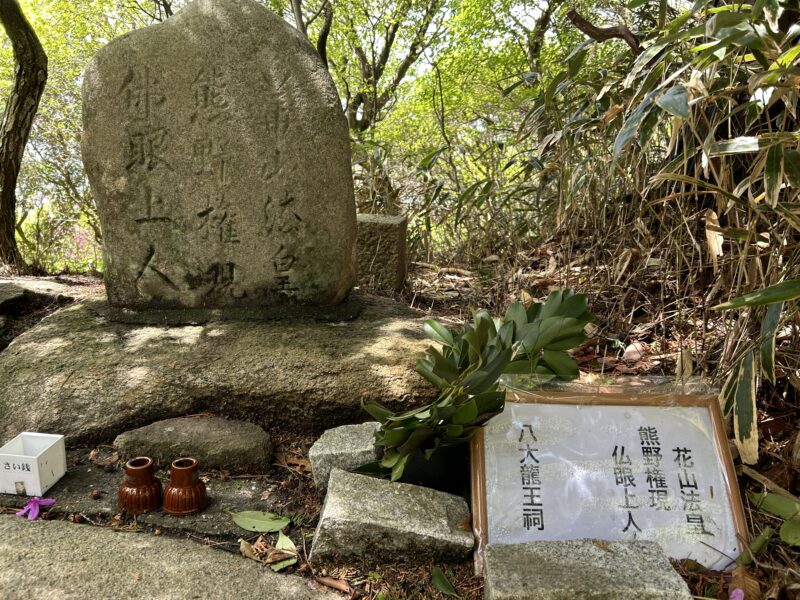 花山法皇
熊野権現
佛眼上人
さい銭
花山法皇
熊野権現
仏眼上人
八大龍王祠